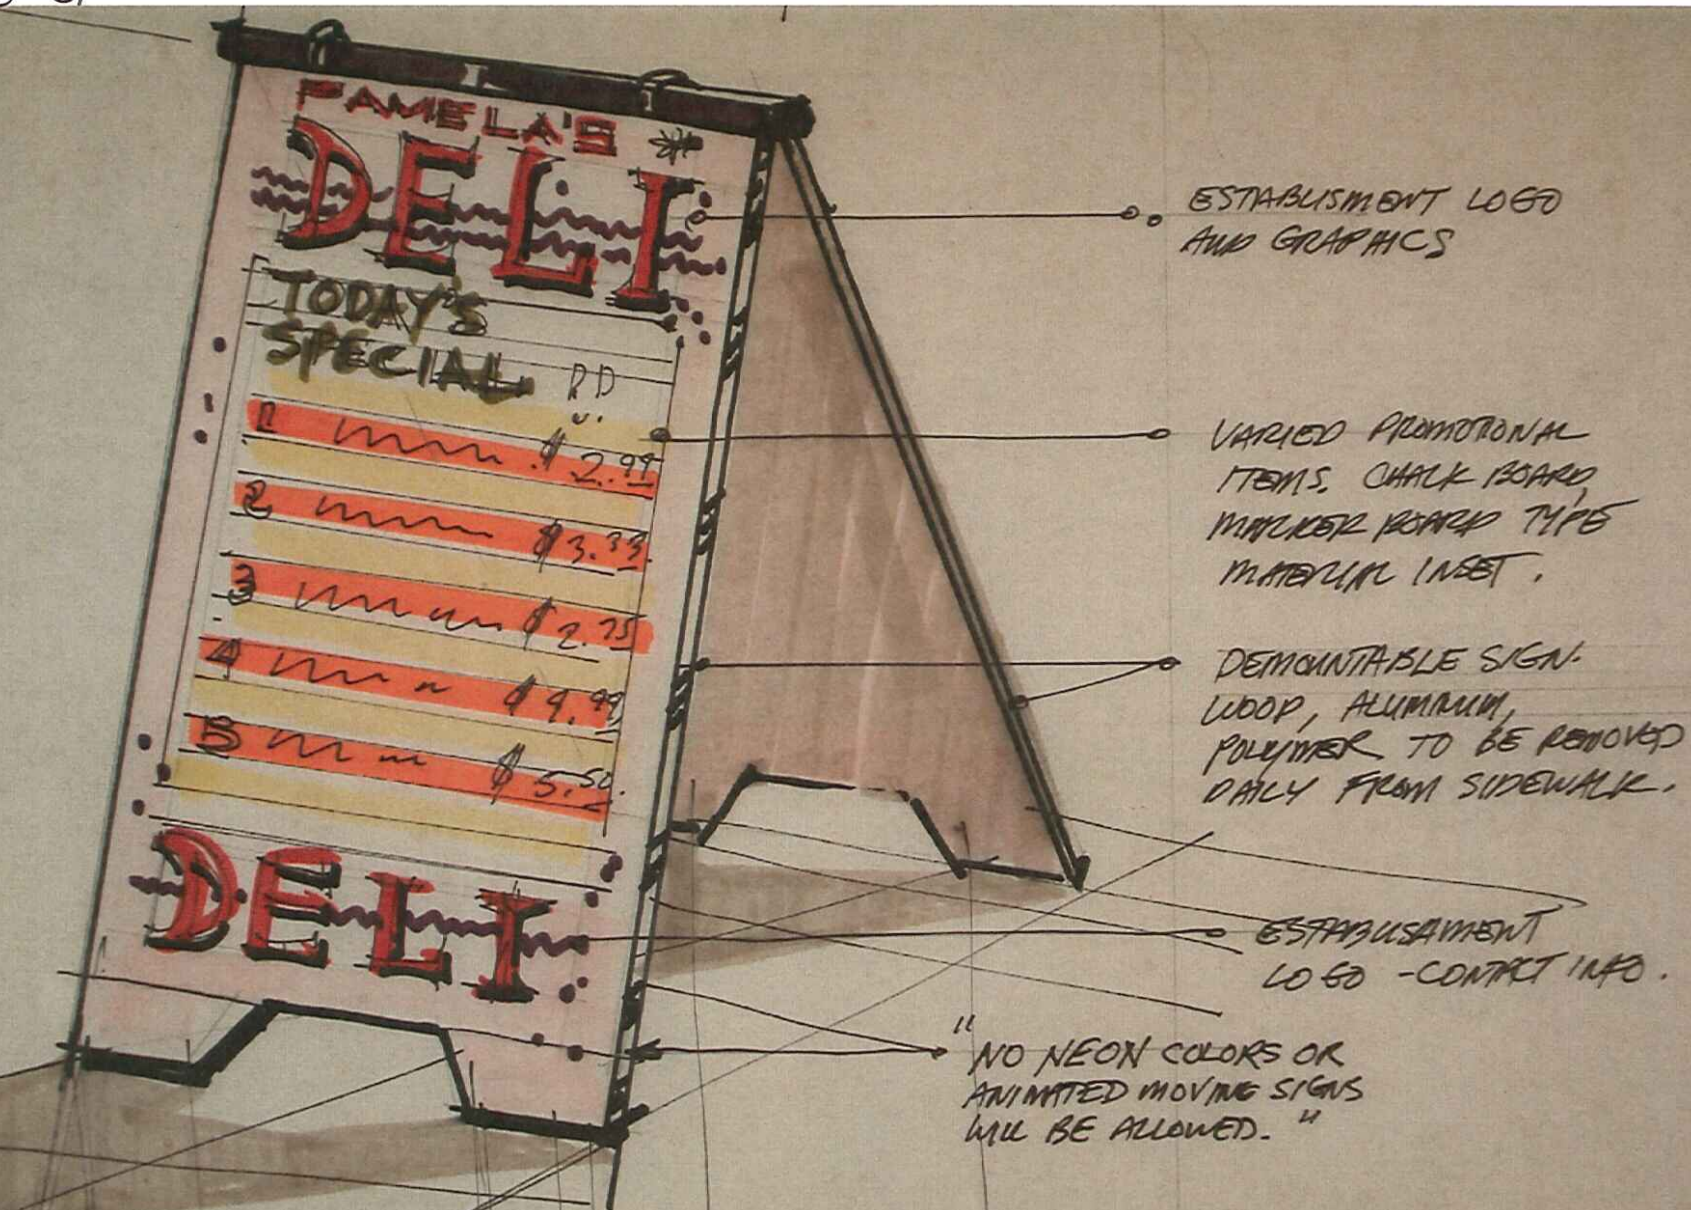 PAMELA'S
DELI
TODAY'S
SPECIAL
1 $2.99
2 $3.33
3 $2.75
4 $4.99
5 $5.50
DELI
ESTABLISMENT LOGO
AND GRAPHICS
VARIED PROMOTIONAL
ITEMS. CHALK BOARD,
MARKER BOARD TYPE
MATERIAL INSET.
DEMOUNTABLE SIGN.
WOOD, ALUMINUM,
POLYMER TO BE REMOVED
DAILY FROM SIDEWALK.
ESTABLISHMENT
LOGO - CONTACT INFO.
"NO NEON COLORS OR
ANIMATED MOVING SIGNS
WILL BE ALLOWED."